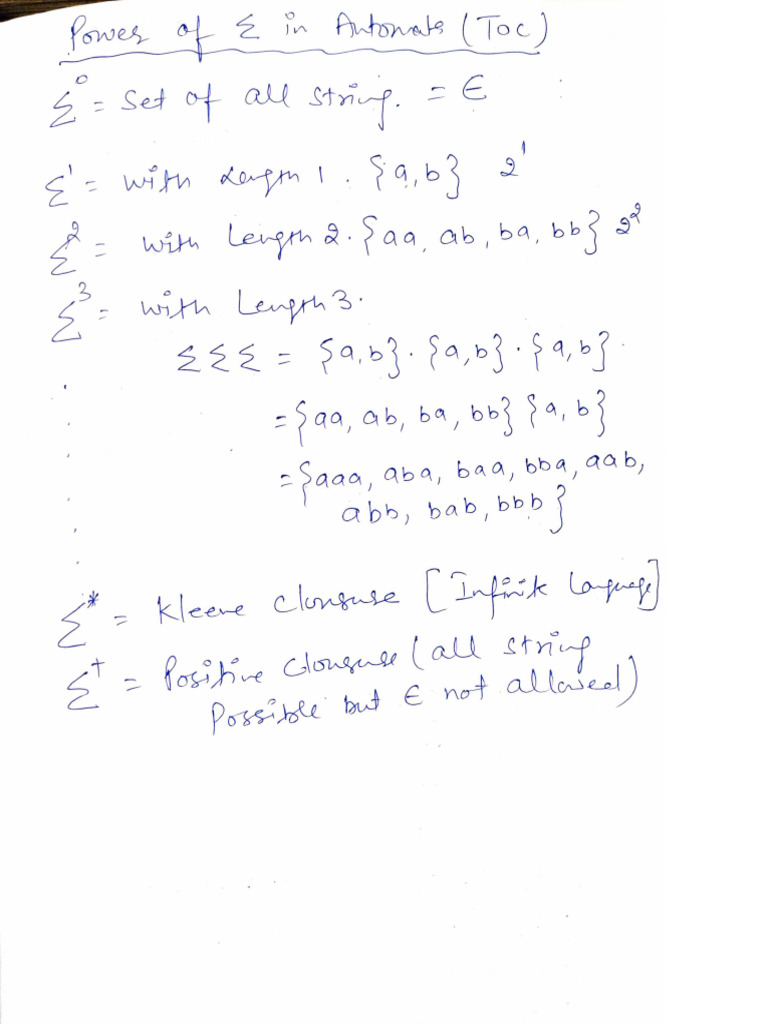 Power of Σ in Automata (TOC)
Σ⁰ = Set of all string. = ϵ
Σ¹ = with Length 1. {a,b} 2¹
Σ² = with Length 2. {aa, ab, ba, bb} 2²
Σ³ = with Length 3.
ΣΣΣ = {a,b}·{a,b}·{a,b}.
= {aa, ab, ba, bb} {a, b}
= {aaa, aba, baa, bba, aab,
abb, bab, bbb}
Σ* = Kleene Cloususe [Infinite Language]
Σ⁺ = Positive Cloususe (all string
Possible but ϵ not allowed)